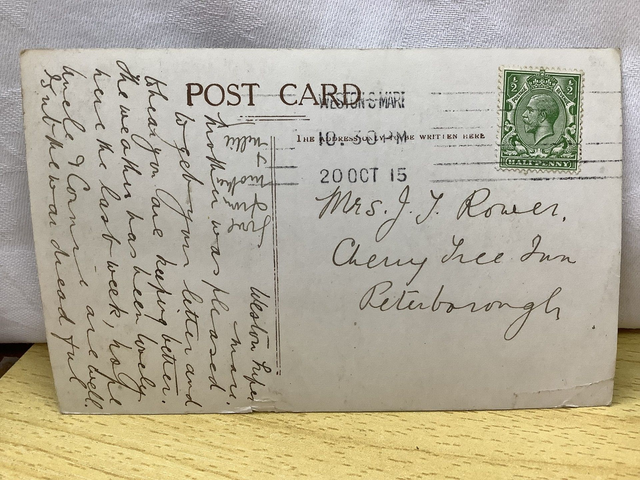 POST CARD
WESTON S MARE
10.30 PM
20 OCT 15
THE ADDRESS ONLY TO BE WRITTEN HERE
½ ½
HALFPENNY
Mrs. J. T. Rower,
Cherry Tree Inn
Peterborough
Weston Super
mare.
Mother was pleased
to get your letter and
hear you are keeping better.
the weather has been lovely
here the last week, hope
Uncle & Connie are well.
Isn't the war dreadful.
love from
mother
&
nellie